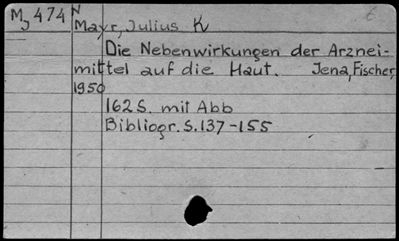 M, 474 N
Mayr, Julius K
Die Nebenwirkungen der Arznei-
mittel auf die Haut. Jena, Fischer,
1950
162 S. mit Abb
Bibliogr. S. 137-155